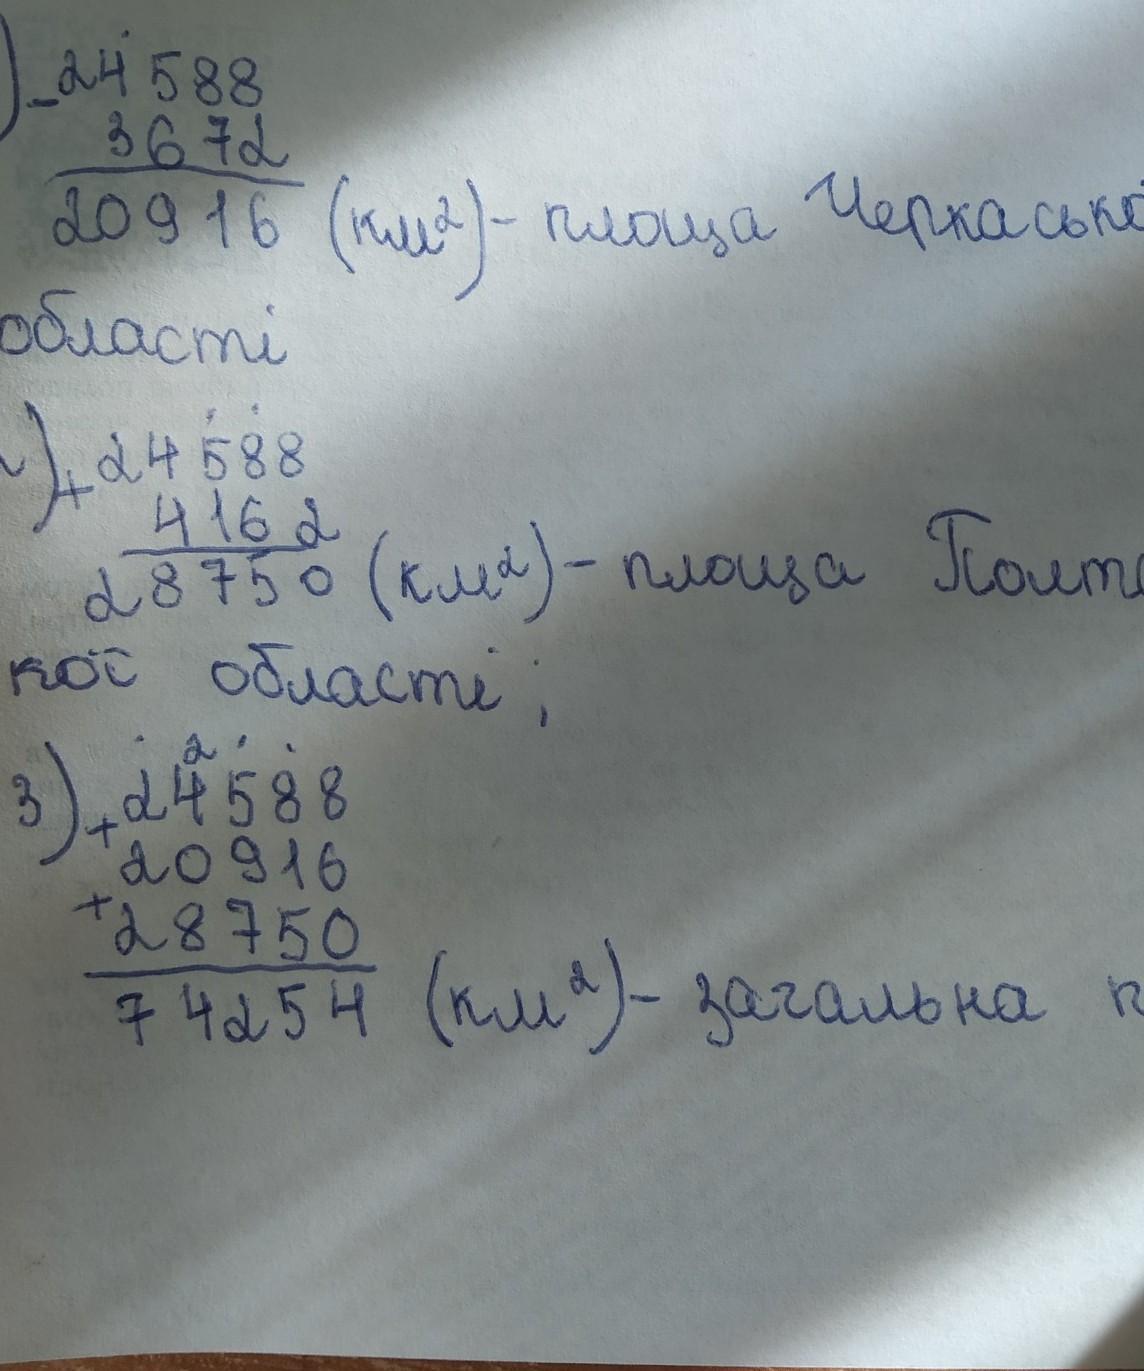 ) - 24 588
3672
20916 (км²) - площа Черкасько
області
) + 24 588
4162
28750 (км²) - площа Полта
кої області ;
3) + 24588
20916
+ 28750
74254 (км²) - загальна п